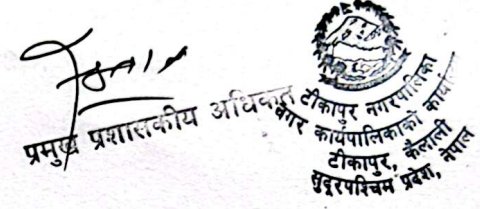 प्रमुख प्रशासकीय अधिकृत
टीकापुर नगरपालिका
नगर कार्यपालिकाको कार्या
टीकापुर, कैलाली
सुदूरपश्चिम प्रदेश, नेपाल